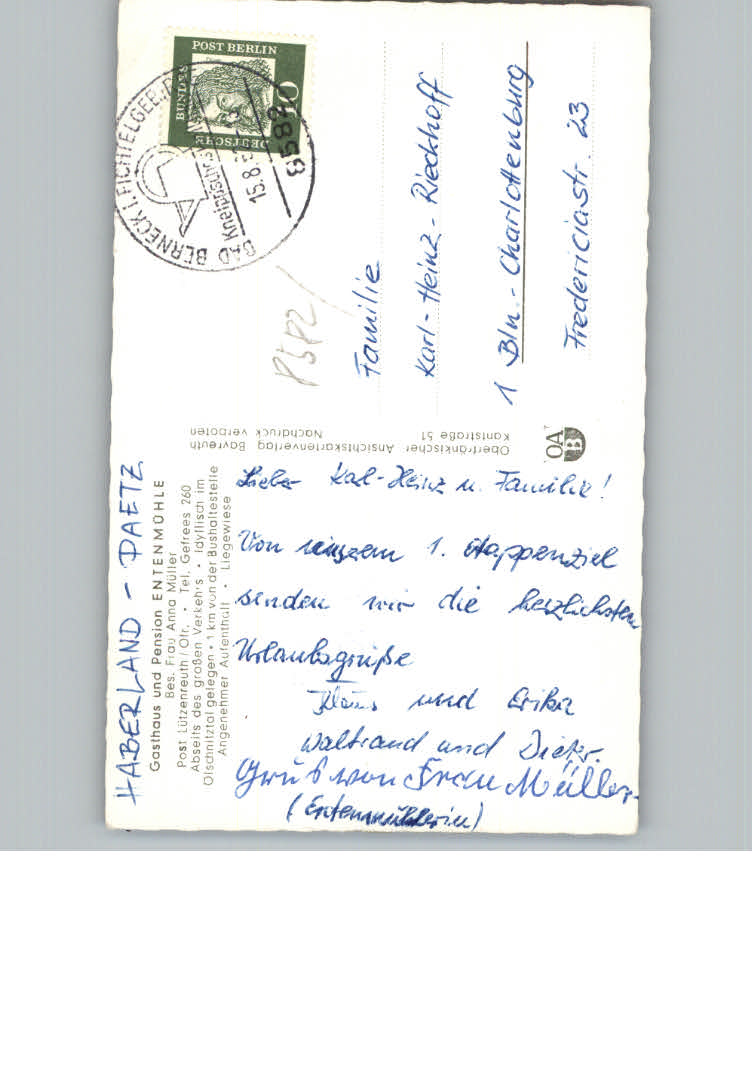 HABERLAND - PAETZ
Gasthaus und Pension ENTENMÜHLE
Bes. Frau Anna Müller
Post Lützenreuth/Ofr. • Tel. Gefrees 260
Abseits des großen Verkehrs • Idyllisch im
Ölschnitztal gelegen • 1 km von der Bushaltestelle
Angenehmer Aufenthalt • Liegewiese
Liebe Karl-Heinz u. Familie!
Von unserem 1. Etappenziel
senden wir die herzlichsten
Urlaubsgrüße
Klaus und Erika
Waltraud und Dieter.
Gruß von Frau Müller
(Entenmüllerin)
Oberfränkischer Ansichtskartenverlag Bayreuth
Kantstraße 51 Nachdruck verboten
OA
B
DEUTSCHE
BUNDES
POST BERLIN
10
BAD BERNECK I. FICHTELGEB.
Kneipp
15.8.
8582
Familie
Karl-Heinz-Riechhoff
1 Bln.-Charlottenburg
Fredericiastr. 23